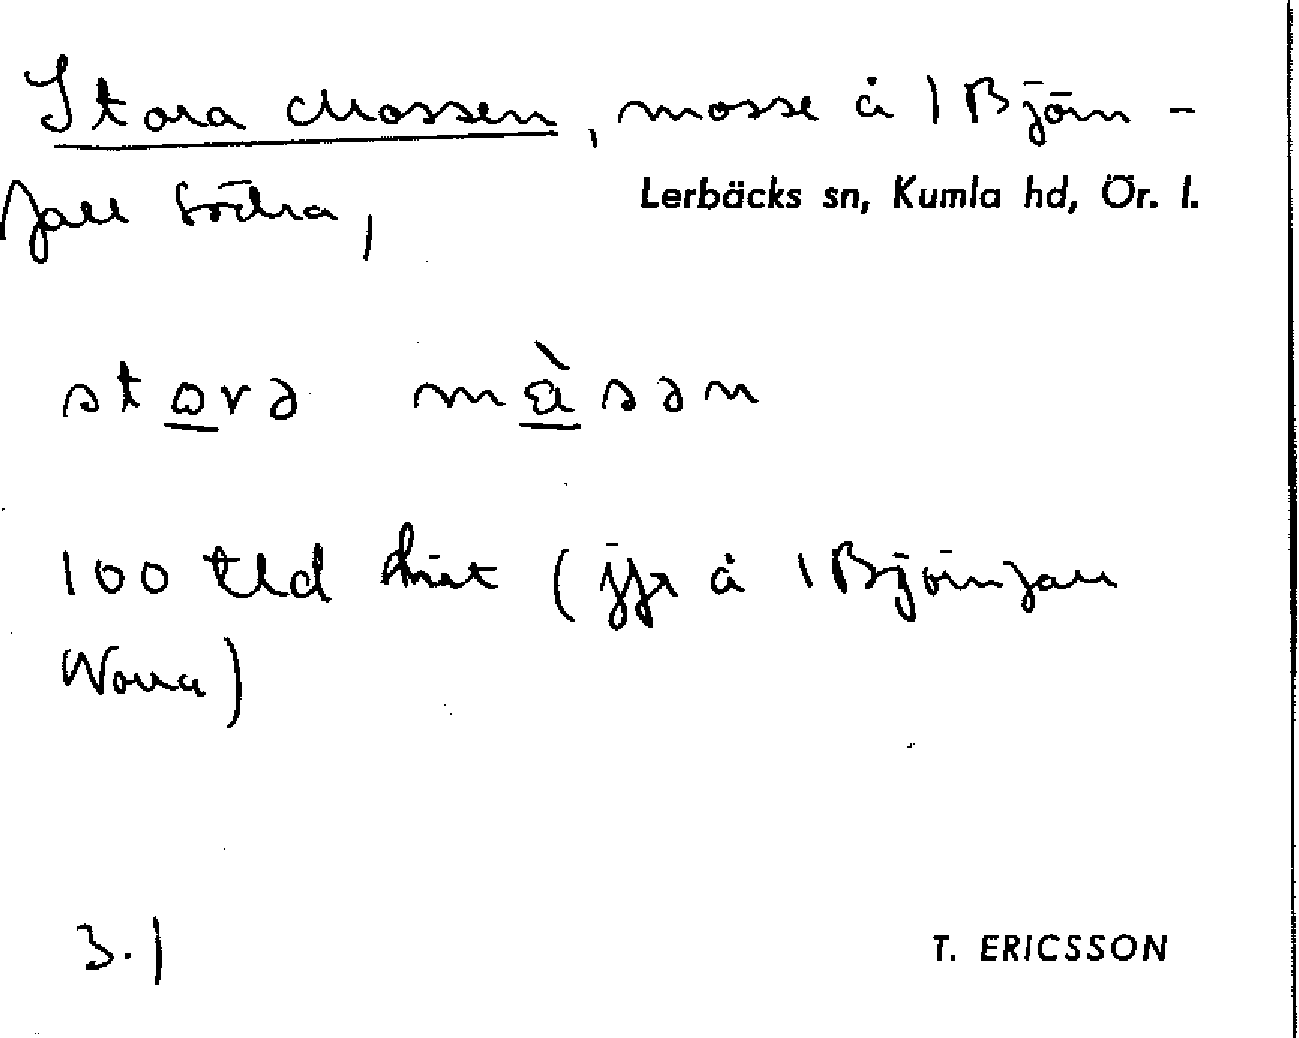 Stora Mossen, mosse å 1 Björn-
fall Södra,
Lerbäcks sn, Kumla hd, Ör. l.
stora måsən
100 tld (jfr å 1 Björnfall
Norra)
3.1
T. ERICSSON